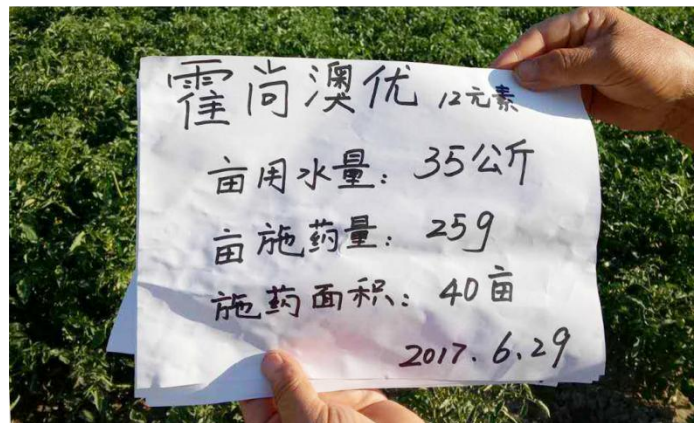 霍尚澳优 12元素
亩用水量：35公斤
亩施药量：25g
施药面积：40亩
2017.6.29